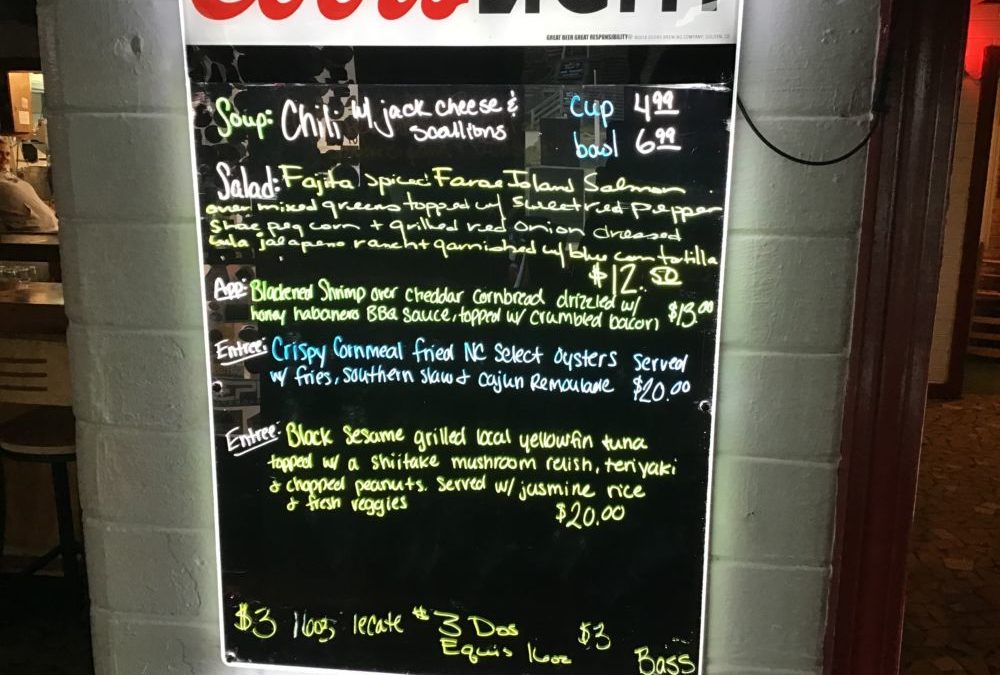 Coors LIGHT
GREAT BEER GREAT RESPONSIBILITY® ©2018 COORS BREWING COMPANY, GOLDEN, CO
Soup: Chili w/ jack cheese & cup 4.99
scallions bowl 6.99
Salad: Fajita Spiced Faroe Island Salmon
over mixed greens topped w/ sweet red pepper
Shoe peg corn + grilled red onion dressed
jalapeno ranch + garnished w/ blue corn tortilla
$12.50
App: Blackened Shrimp over cheddar cornbread drizeled w/
honey habanero BBQ sauce, topped w/ crumbled bacon $13.00
Entree: Crispy Cornmeal fried NC Select Oysters served
w/ fries, southern slaw & cajun Remoulade $20.00
Entree: Black Sesame grilled local yellowfin tuna
topped w/ a shiitake mushroom relish, teriyaki
& chopped peanuts. Served w/ jasmine rice
& fresh veggies $20.00
$3 16oz tecate $3 Dos $3
Equis 16oz Bass